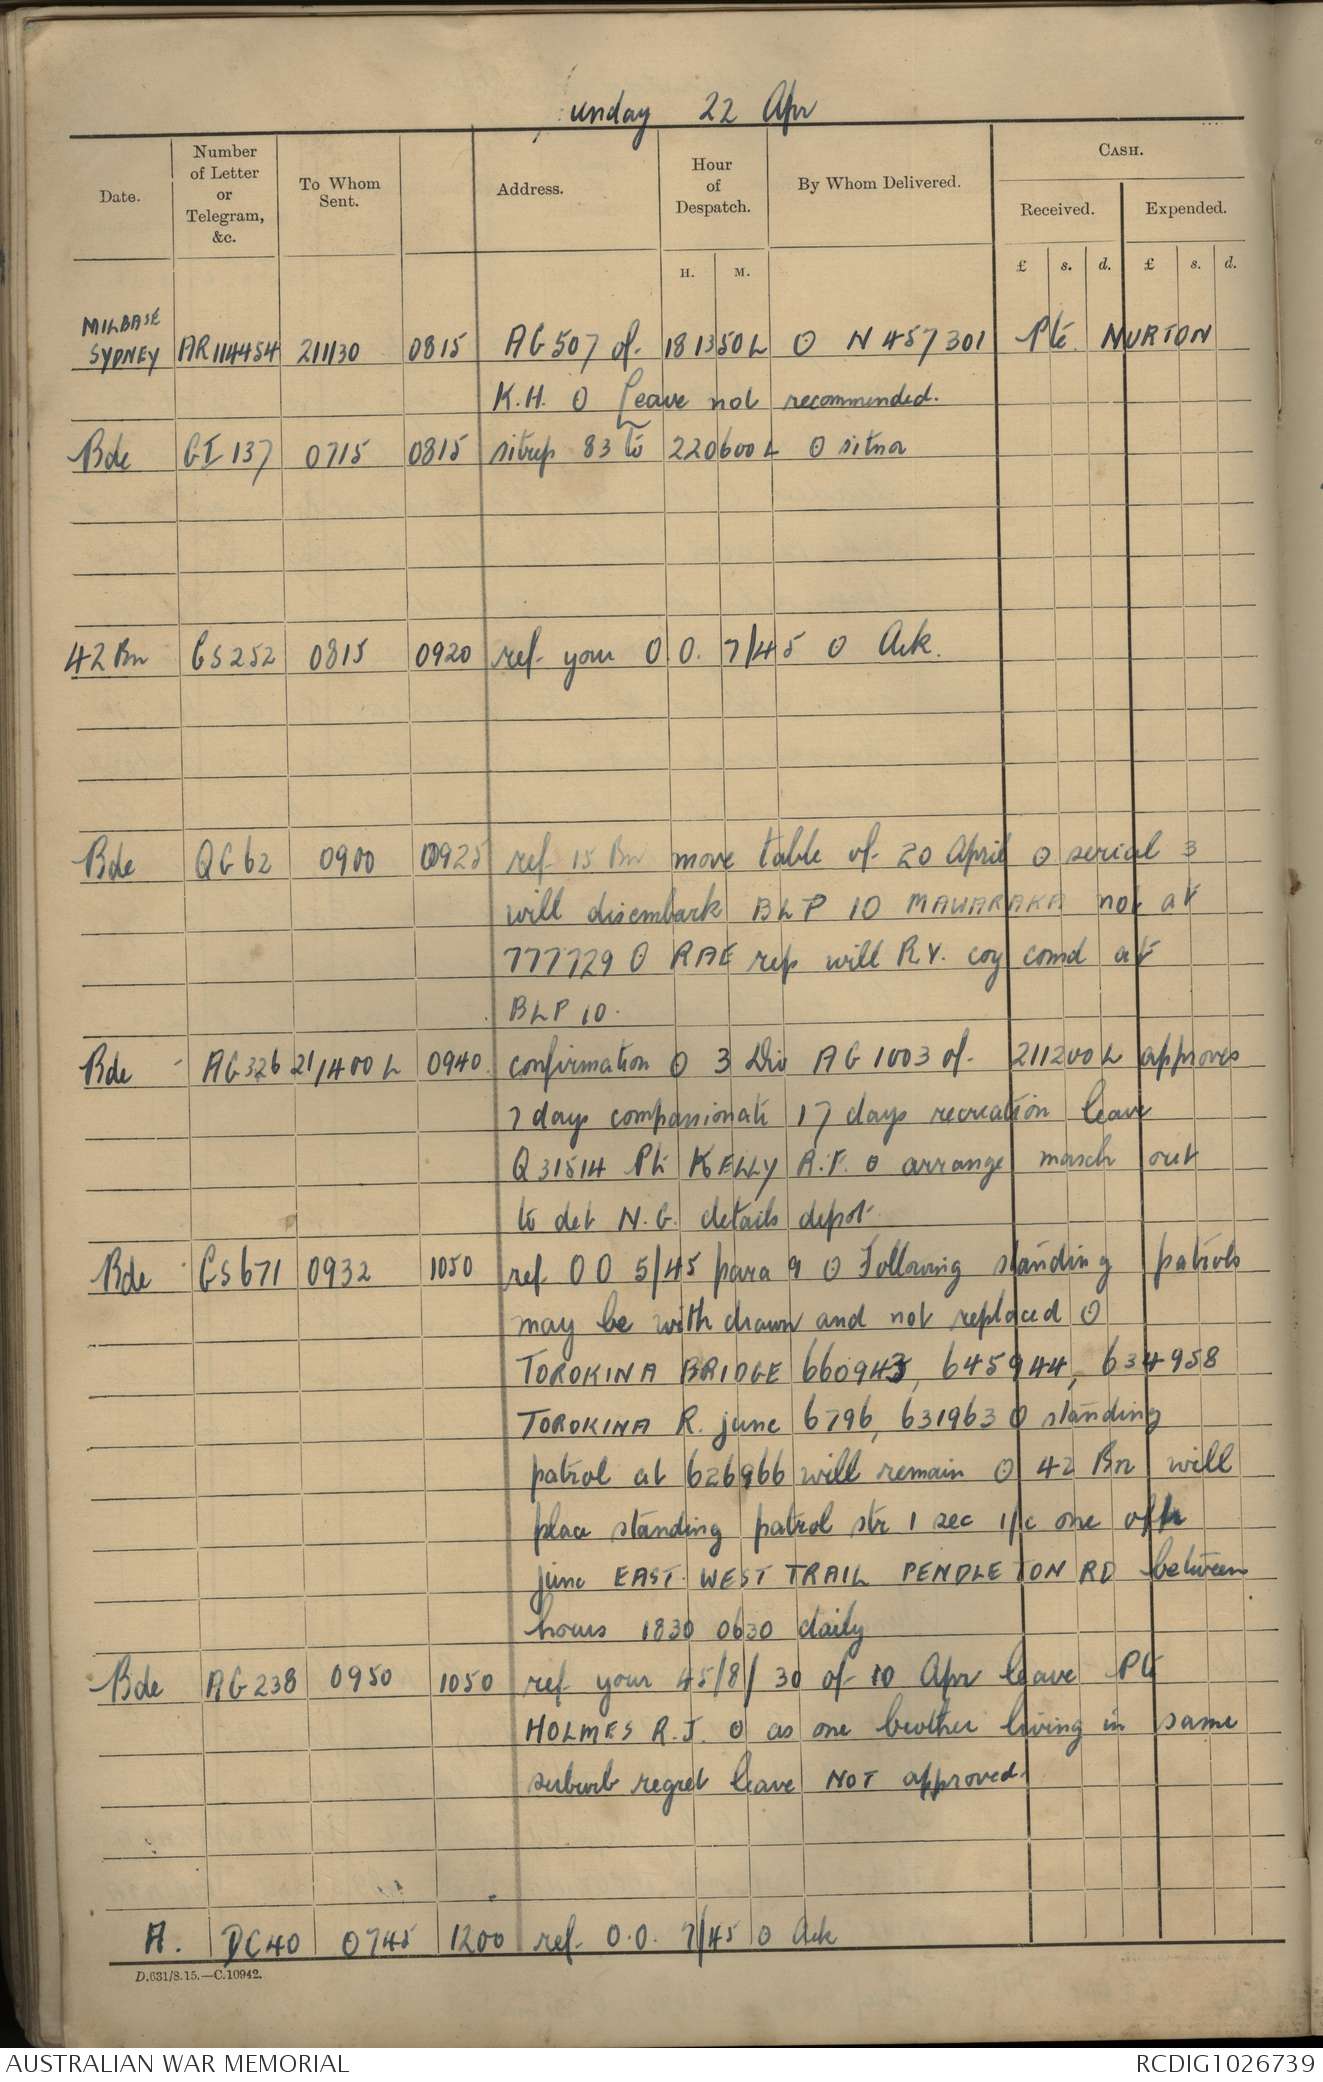 unday 22 Apr
Date.
Number of Letter or Telegram, &c.
To Whom Sent.
Address.
Hour of Despatch.
By Whom Delivered.
CASH.
Received.
Expended.
H. M. £ s. d. £ s. d.
MILBASE
SYDNEY AR114454 211130 0815 AG507 of 181350L O N457301 Pte NURTON
K.H. O Leave not recommended.
Bde GI 137 0715 0815 sitrep 83 to 220600L O sitnor
42 Bn GS252 0815 0920 ref your O O. 7/45 O Ack.
Bde QG62 0900 0925 ref 15 Bn move table of 20 April O serial 3
will disembark BLP 10 MAWARAKA not at
777729 O RAE rep will R.V. coy comd at
BLP 10.
Bde AG326 21/1400L 0940 confirmation O 3 Div AG1003 of 211200L approves
7 days compassionate 17 days recreation leave
Q31514 Pte KELLY A.F. O arrange march out
to det N.G. details depot
Bde GS671 0932 1050 ref O O 5/45 para 9 O Following standing patrols
may be withdrawn and not replaced O
TOROKINA BRIDGE 660943, 645944, 634958
TOROKINA R. junc 6796, 631963 O standing
patrol at 626966 will remain O 42 Bn will
place standing patrol str 1 sec i/c one offr
junc EAST-WEST TRAIL PENDLETON RD between
hours 1830 0630 daily
Bde AG238 0950 1050 ref your 45/8/30 of 10 Apr leave Pte
HOLMES R.J. O as one brother living in same
suburb regret leave NOT approved.
A. DC40 0745 1200 ref O.O. 7/45 O Ack
D.631/8.15.—C.10942.
AUSTRALIAN WAR MEMORIAL
RCDIG1026739